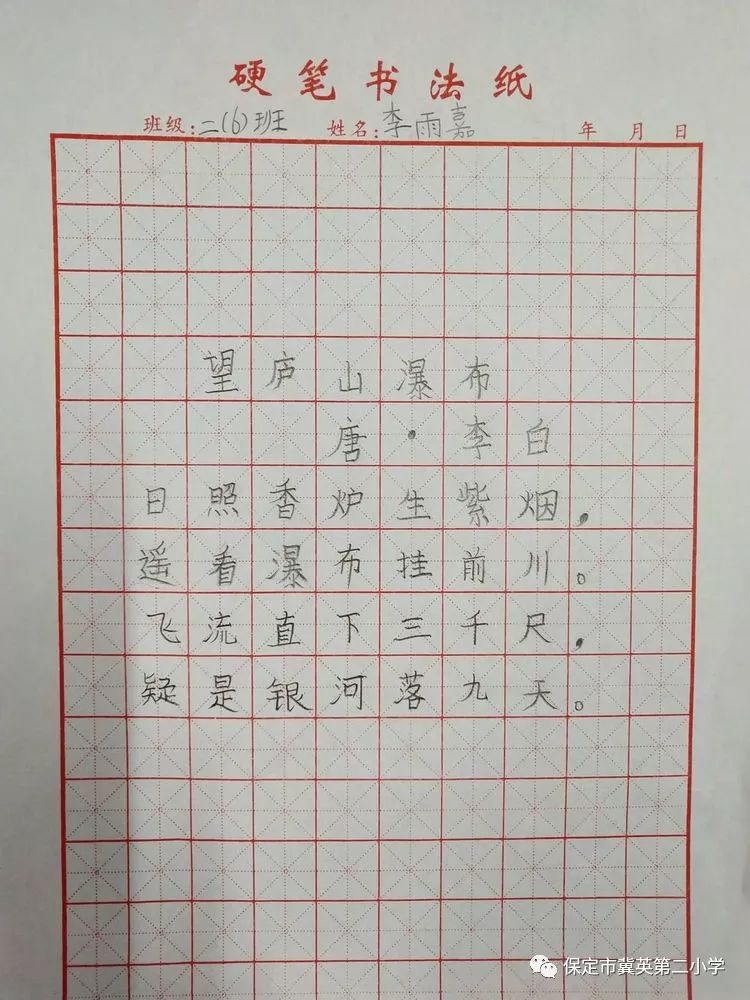 硬笔书法纸
班级:二(6)班 姓名:李雨嘉 年 月 日
望庐山瀑布
唐·李白
日照香炉生紫烟,
遥看瀑布挂前川。
飞流直下三千尺,
疑是银河落九天。
保定市冀英第二小学